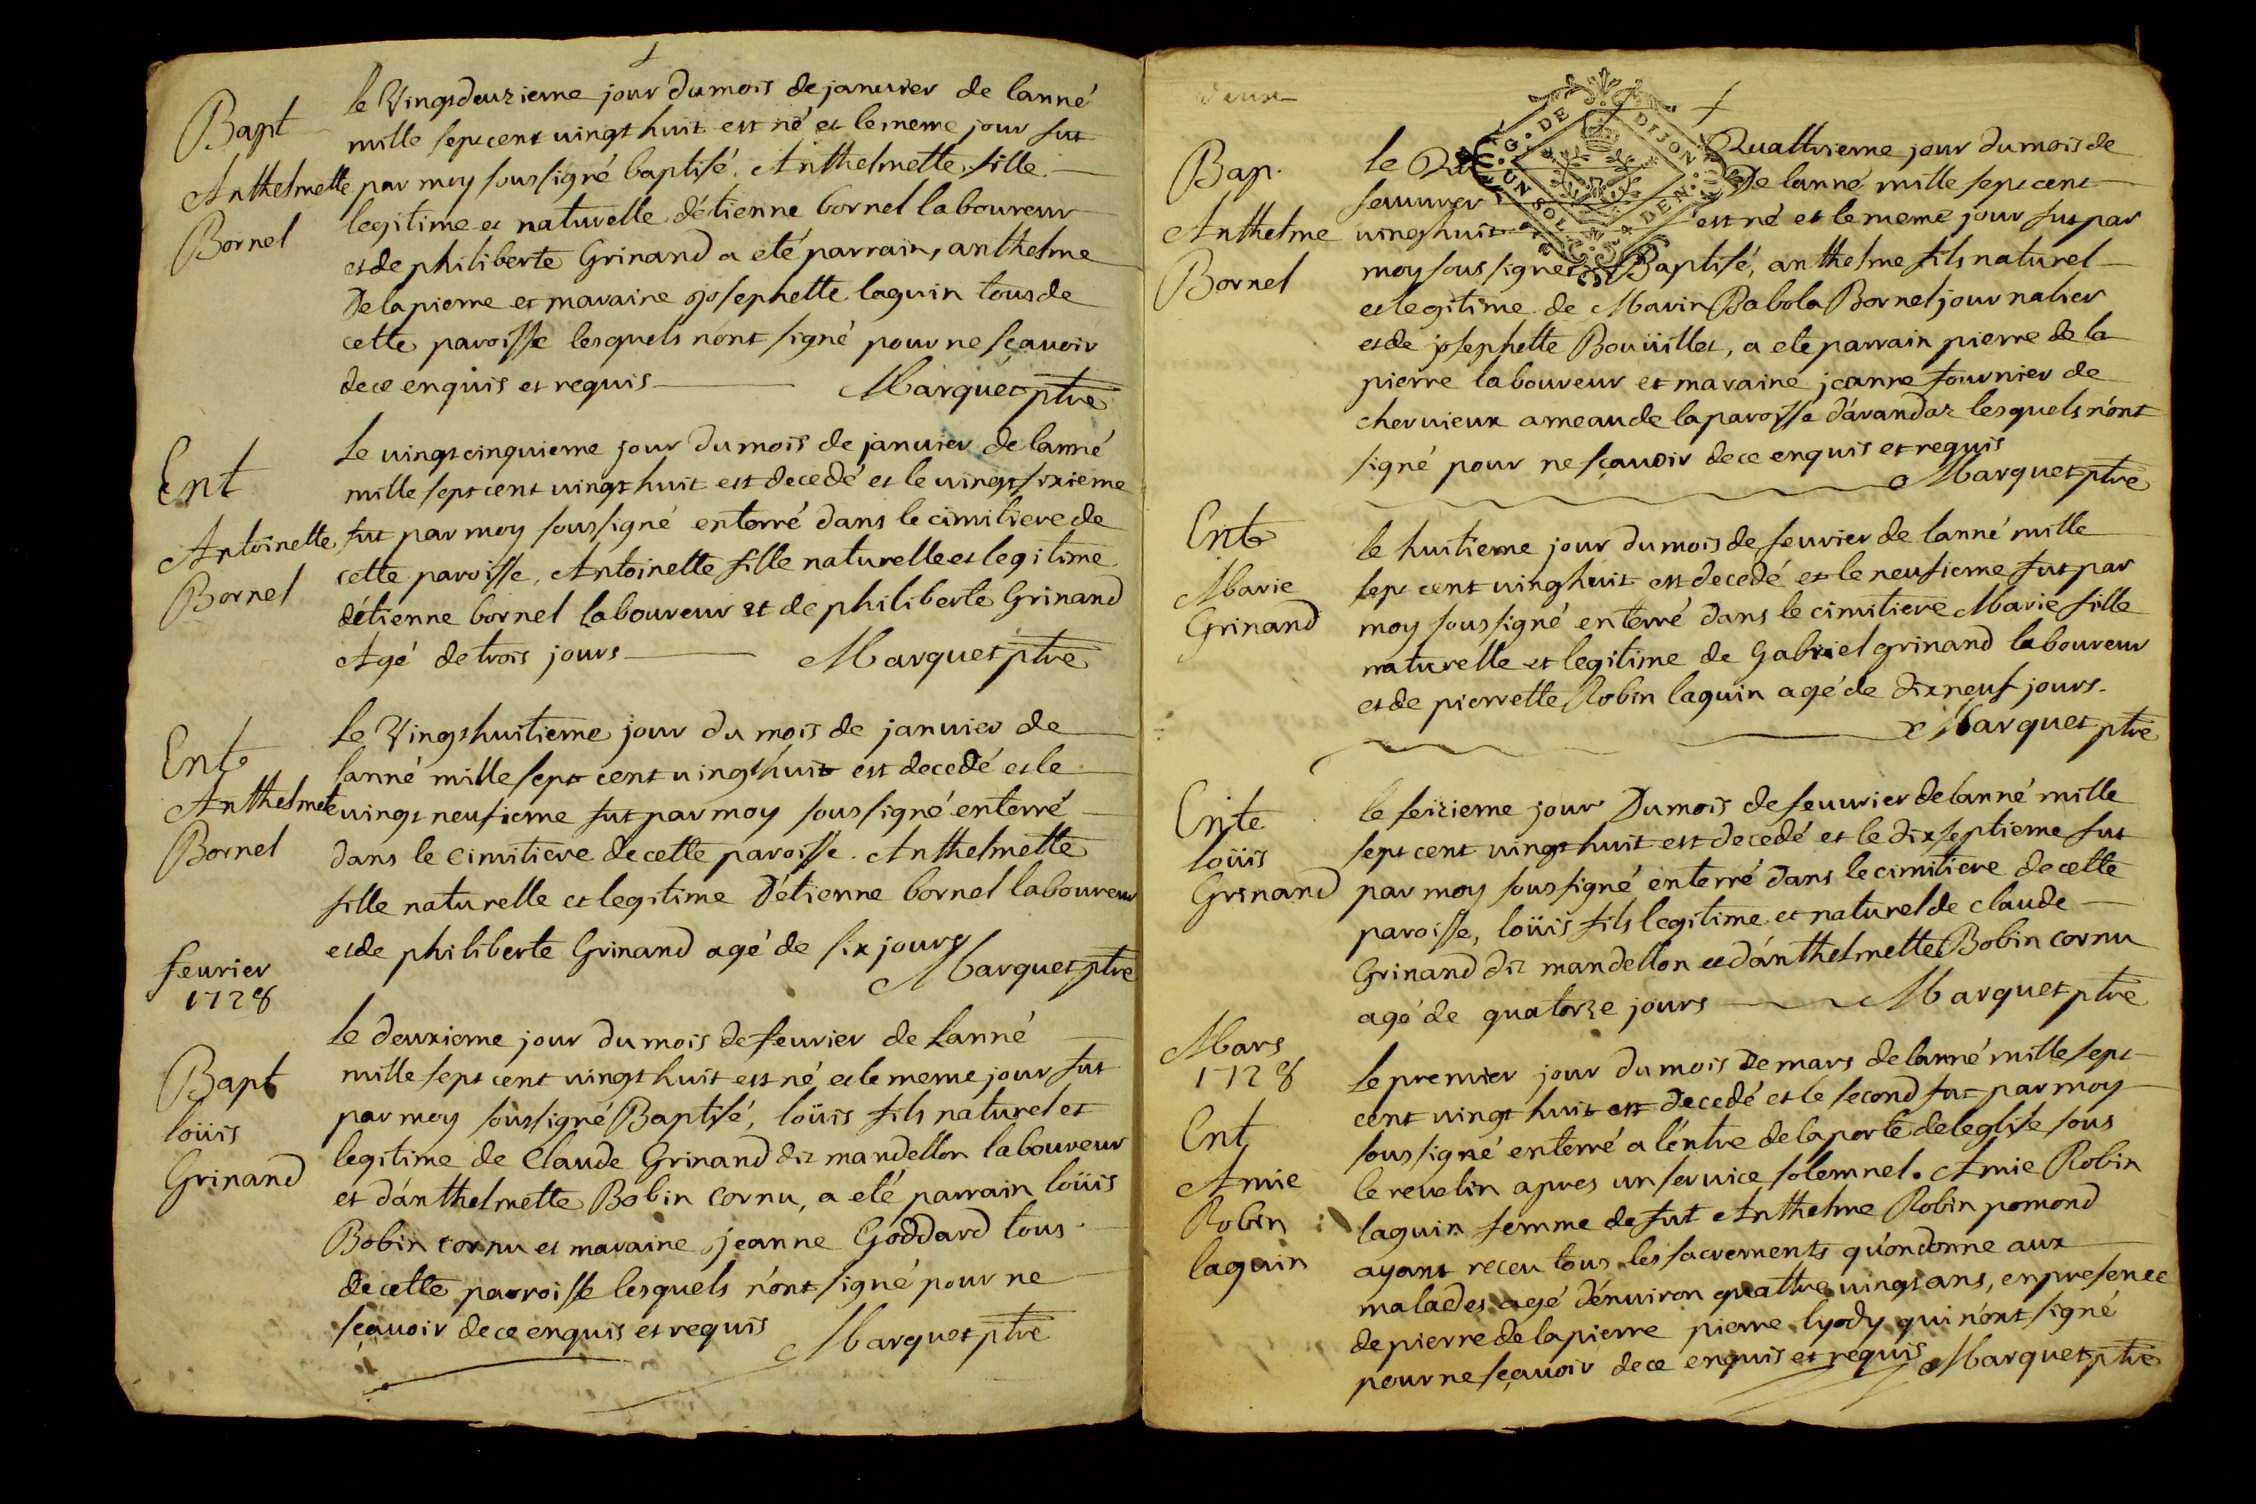 Bapt
Anthelmette
Bornel
le Vingsdeuzieme jour du mois de janvier de lanné
mille sept cent vingt huit est né et le meme jour fut
par moy soussigné baptisé. Anthelmette fille
legitime et naturelle d'étienne bornel laboureur
et de philiberte Grinand a eté parrain, anthelme
Delapierre et maraine josephette laguin tous de
cette paroisse lesquels n'ont signé pour ne sçavoir
de ce enquis et requis Marquet ptre
Ent
Antoinette
Bornel
Le vingt cinquieme jour du mois de janvier de lanné
mille sept cent vingt huit est decedé et le vingt sixieme
fut par moy soussigné enterré dans le cimitiere de
cette paroisse, Antoinette fille naturelle et legitime
d'étienne bornel laboureur et de philiberte Grinand
Agé de trois jours Marquet ptre
Ent
Anthelmete
Bornel
Le Vingt huitieme jour du mois de janvier de
lanné mille sept cent vingt huit est decedé et le
vingt neufieme fut par moy soussigné enterré
dans le cimitiere de cette paroisse. Anthelmette
fille naturelle et legitime D'étienne bornel laboureur
et de philiberte Grinand agé de six jours
Marquet ptre
feurier
1728
Bapt
loüis
Grinand
le deuxieme jour du mois de feurier de Lanné
mille sept cent vingt huit est né et le meme jour fut
par moy soussigné Baptisé, loüis fils naturel et
legitime de Claude Grinand dit mandellon laboureur
et d'anthelmette Bobin cornu, a eté parrain loüis
Bobin cornu et maraine jeanne Goddard tous
de cette paroisse lesquels n'ont signé pour ne
sçavoir de ce enquis et requis Marquet ptre
deux
G. DE DIJON
UN SOL DEN.
Bap.
Anthelme
Bornel
le Quattrieme jour du mois de
feuurier De lanné mille sept cent
vingt huit est né et le meme jour fut par
moy soussigné Baptisé, anthelme fils naturel
et legitime de Marin Babola Bornel journalier
et de josephette Boüillet, a eté parrain pierre de la
pierre laboureur et maraine jeanne fournier de
chervieux ameau de la paroisse d'arandaz lesquels n'ont
signé pour ne sçavoir de ce enquis et requis
Marquet ptre
Ent
Marie
Grinand
le huitieme jour du mois de feurier de lanné mille
sept cent vingt huit est decedé et le neufieme fut par
moy soussigné enterré dans le cimitiere Marie fille
naturelle et legitime de Gabriel grinand laboureur
et de pierrette Robin laguin agé de dixneuf jours.
Marquet ptre
Ente
loüis
Grinand
le seizieme jour Du mois de feuurier de lanné mille
sept cent vingt huit est decedé et le dix septieme fut
par moy soussigné enterré dans le cimitiere de cette
paroisse, loüis fils legitime et naturel de claude
Grinand dit mandellon et d'anthelmette Bobin cornu
agé de quatorze jours Marquet ptre
Mars
1728
Ent
Amie
Robin
laguin
Le premier jour du mois De mars de lanné mille sept
cent vingt huit est decedé et le second fut par moy
soussigné enterré a l'entre de la porte de leglise sous
le revelin apres un service solemnel. Amie Robin
laguin femme de fut Anthelme Robin pomond
ayant receu tous les sacrements qu'on donne aux
malades agé d'environ quattre vingt ans, en presence
de pierre de la pierre pierre lyody qui n'ont signé
pour ne sçavoir de ce enquis et requis Marquet ptre